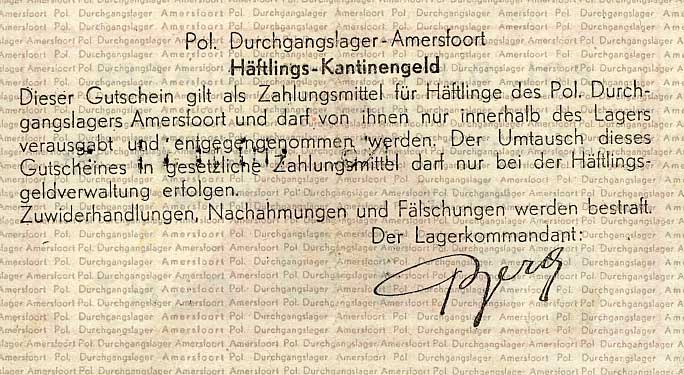 Pol. Durchgangslager-Amersfoort
Häftlings-Kantinengeld
Dieser Gutschein gilt als Zahlungsmittel für Häftlinge des Pol. Durch-
gangslagers Amersfoort und darf von ihnen nur innerhalb des Lagers
verausgabt und entgegengenommen werden. Der Umtausch dieses
Gutscheines in gesetzliche Zahlungsmittel darf nur bei der Häftlings-
geldverwaltung erfolgen.
Zuwiderhandlungen, Nachahmungen und Fälschungen werden bestraft.
Der Lagerkommandant:
Berg